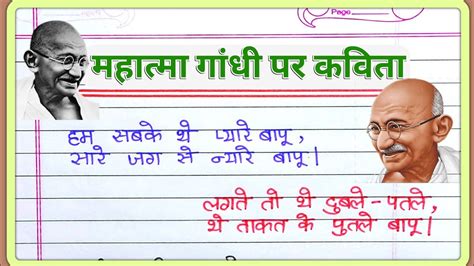 Page
महात्मा गांधी पर कविता
हम सबके थे प्यारे बापू,
सारे जग से न्यारे बापू।
लगते तो थे दुबले-पतले,
थे ताकत के पुतले बापू।